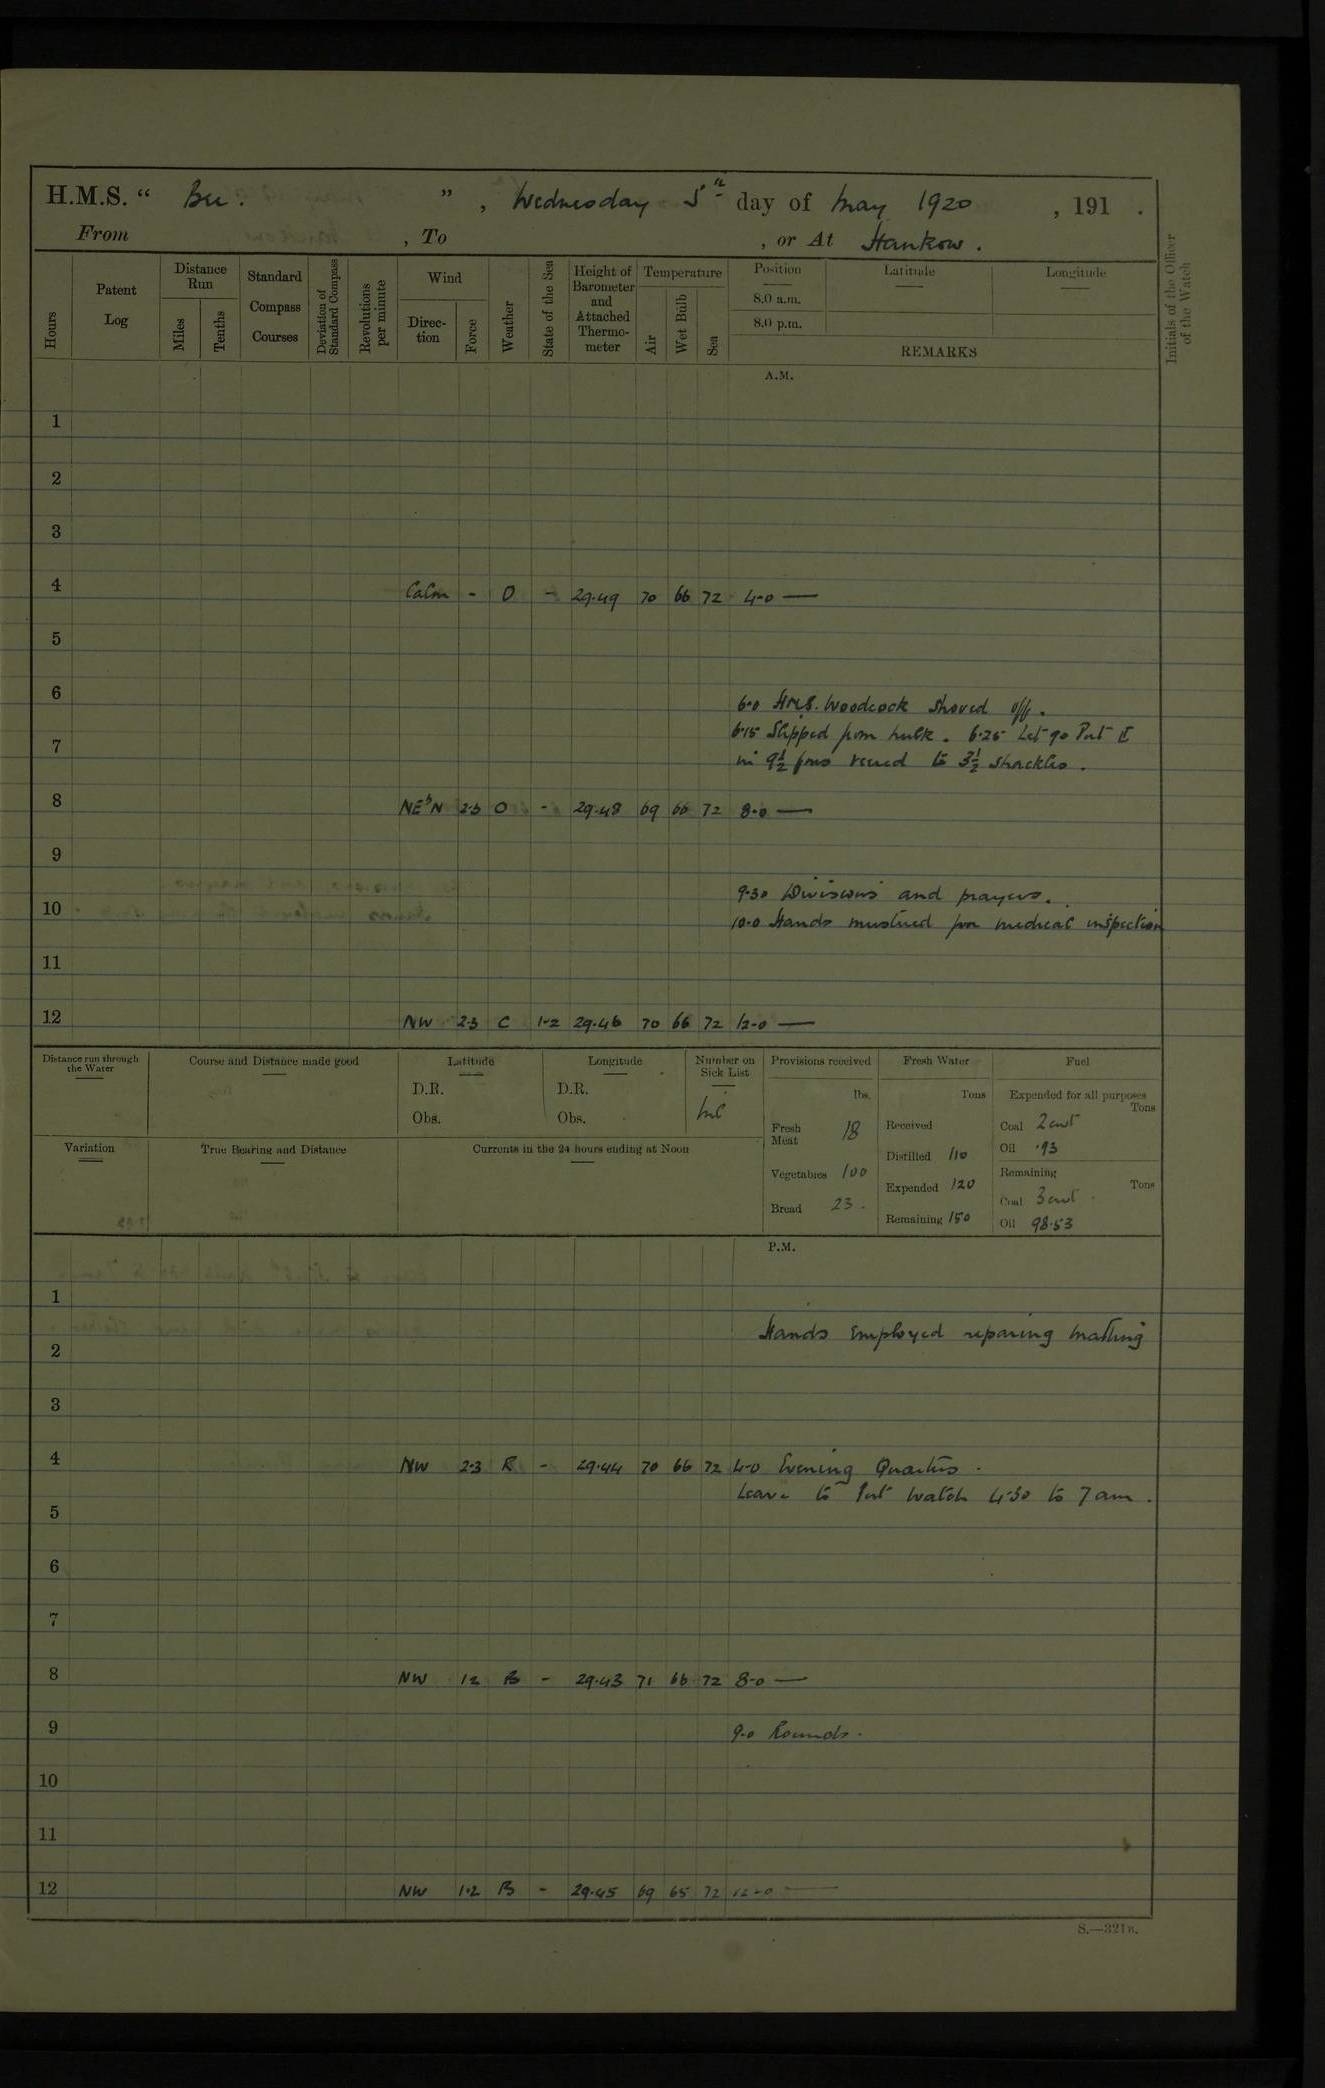 H.M.S. “ Bee. ” , Wednesday 5th day of May 1920 , 191 .
From , To , or At Hankow .
Hours
Patent Log
Distance Run
Miles
Tenths
Standard Compass Courses
Deviation of Standard Compass
Revolutions per minute
Wind
Direction
Force
Weather
State of the Sea
Height of Barometer and Attached Thermometer
Temperature
Air
Wet Bulb
Sea
Position
8.0 a.m.
8.0 p.m.
Latitude
Longitude
REMARKS
Initials of the Officer of the Watch
A.M.
1
2
3
4 Calm - O - 29.49 70 66 72 4-0 —
5
6
6.0 H.M.S. Woodcock shoved off.
6.15 Slipped from hulk. 6.25 Let go Port
7
in 9½ fms veered to 3½ shackles.
8 NEbN 2.3 O - 29.48 69 66 72 8-0 —
9
9.30 Divisions and prayers.
10
10.0 Hands mustered for medical inspection
11
12 NW 2.3 C 1-2 29.46 70 66 72 12-0 —
Distance run through the Water
Course and Distance made good
Latitude
D.R.
Obs.
Longitude
D.R.
Obs.
Number on Sick List
Nil
Provisions received
lbs.
Fresh Meat 18
Vegetables 100
Bread 23.
Fresh Water
Tons
Received
Distilled 110
Expended 120
Remaining 150
Fuel
Expended for all purposes
Tons
Coal 2 cwt
Oil .93
Remaining
Tons
Coal 3 cwt
Oil 98.53
Variation
True Bearing and Distance
Currents in the 24 hours ending at Noon
P.M.
1
Hands employed repairing matting
2
3
4 NW 2.3 R - 29.44 70 66 72 4-0 Evening Quarters.
Leave to Port Watch 4.30 to 7 am.
5
6
7
8 NW 12 B - 29.43 71 66 72 8-0 —
9 9.0 Rounds.
10
11
12 NW 1.2 B - 29.45 69 65 72 12-0 —
S.—321B.